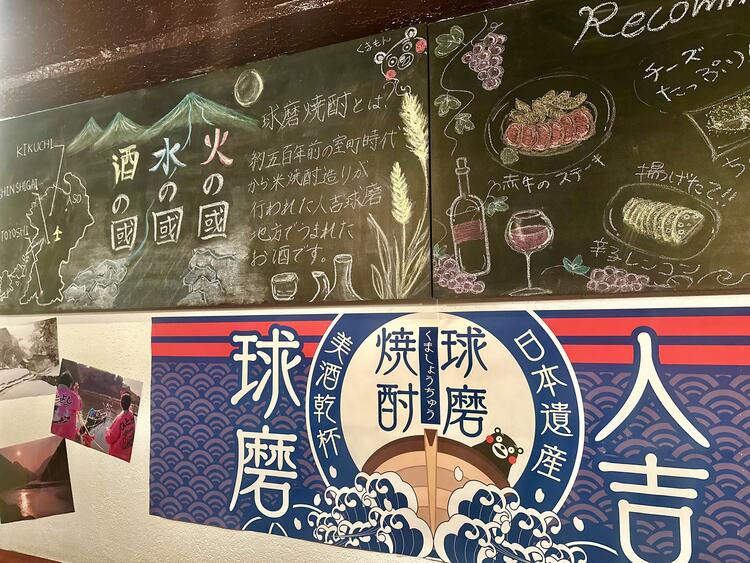 くまもん
KIKUCHI
SHINSHIGAI
ASO
火の國
水の國
酒の國
球磨焼酎とは
約五百年前の室町時代
から米焼酎造りが
行われた人吉球磨
地方でうまれた
お酒です。
Recomm
チーズ
たっぷり
赤牛のステキ
揚げたて!!
辛子レンコン
人吉
球磨
日本遺産
美酒乾杯
球磨
焼酎
くましょうちゅう